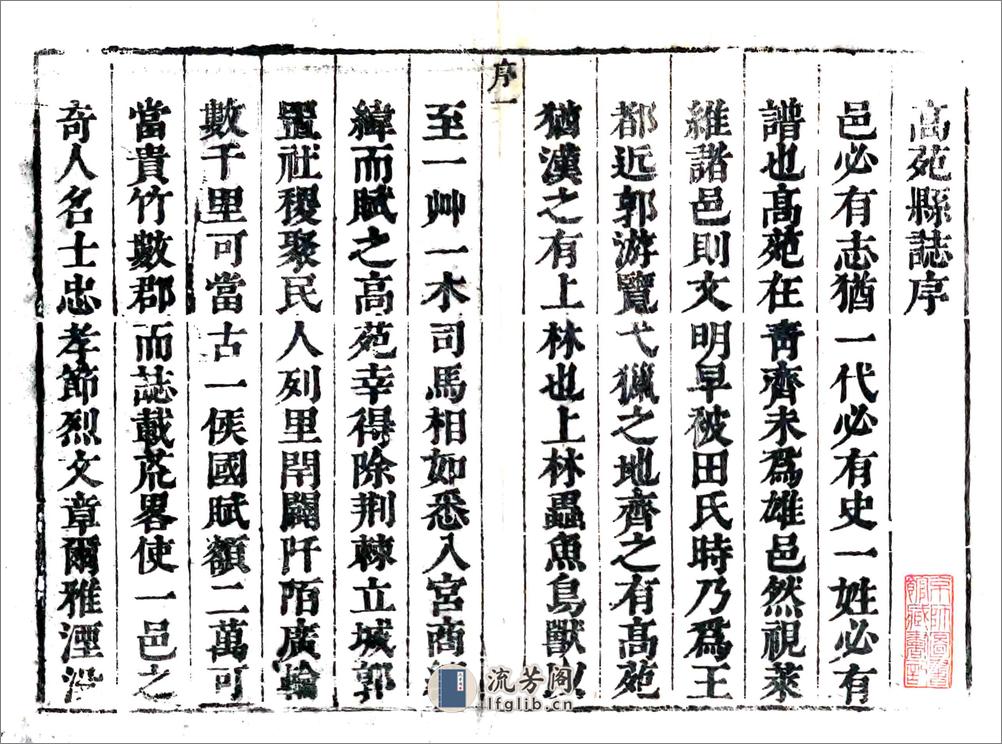 高苑縣誌序
邑必有志猶一代必有史一姓必有
譜也髙苑在青齊未爲雄邑然視萊
維諸邑則文明早被田氏時乃爲王
都近郭游覽弋獵之地齊之有髙苑
猶漢之有上林也上林蟲魚鳥獸以
序一
至一艸一木司馬相如悉入宮商
緯而賦之高苑幸得除荆棘立城郭
置社稷聚民人列里閈闢阡陌廣輪
數千里可當古一侯國賦額二萬可
當貴竹數郡而誌載荒畧使一邑之
奇人名士忠孝節烈文章爾雅湮
流芳阁
lfglib.cn